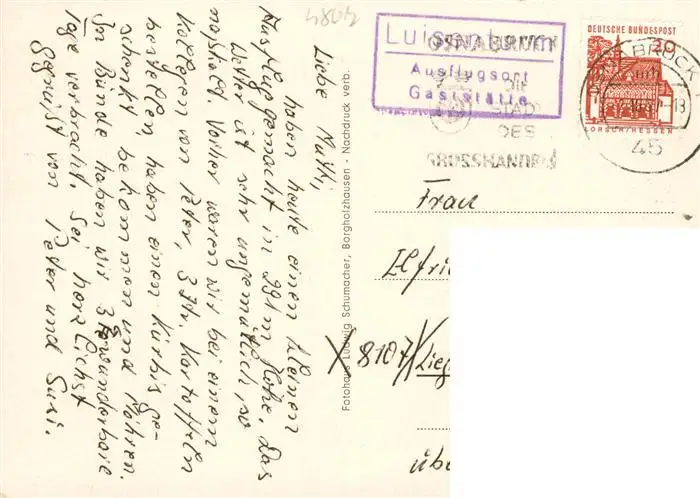 4804
Luisenturm
Ausflugsort
Gaststätte
OSNABRÜCK
DIE
STADT
DES
GROSSHANDELS
DEUTSCHE BUNDESPOST
20
LORSCH/HESSEN
OSNABRÜCK
45
Liebe Mutti,
haben heute einen kleinen
Ausflug gemacht in 291 m Höhe. Das
Wetter ist sehr ungemütlich, so
naßkalt. Vorher waren wir bei einem
Kollegen von Peter, 3 Ztr. Kartoffeln
bestellen, haben einen Kürbis ge-
schenkt bekommen und Möhren.
In Bünde haben wir 3 wunderbare
Tage verbracht. Sei herzlichst
gegrüßt von Peter und Susi.
Fotohaus Ludwig Schumacher, Borgholzhausen - Nachdruck verb.
Frau
Elfri
X 8107 / Lieg
üb